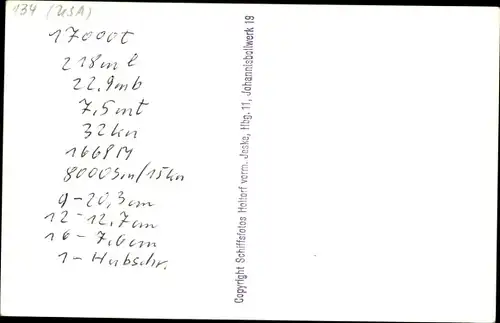 134 (USA)
17000t
218m l
22,9mb
7,5mt
32kn
1668M
8000Sm/15kn
9-20,3cm
12-12,7cm
16-7,6cm
1-Hubschr.
Copyright Schiffsfotos Holtorf vorm. Jeske, Hbg. 11, Johannisbollwerk 19